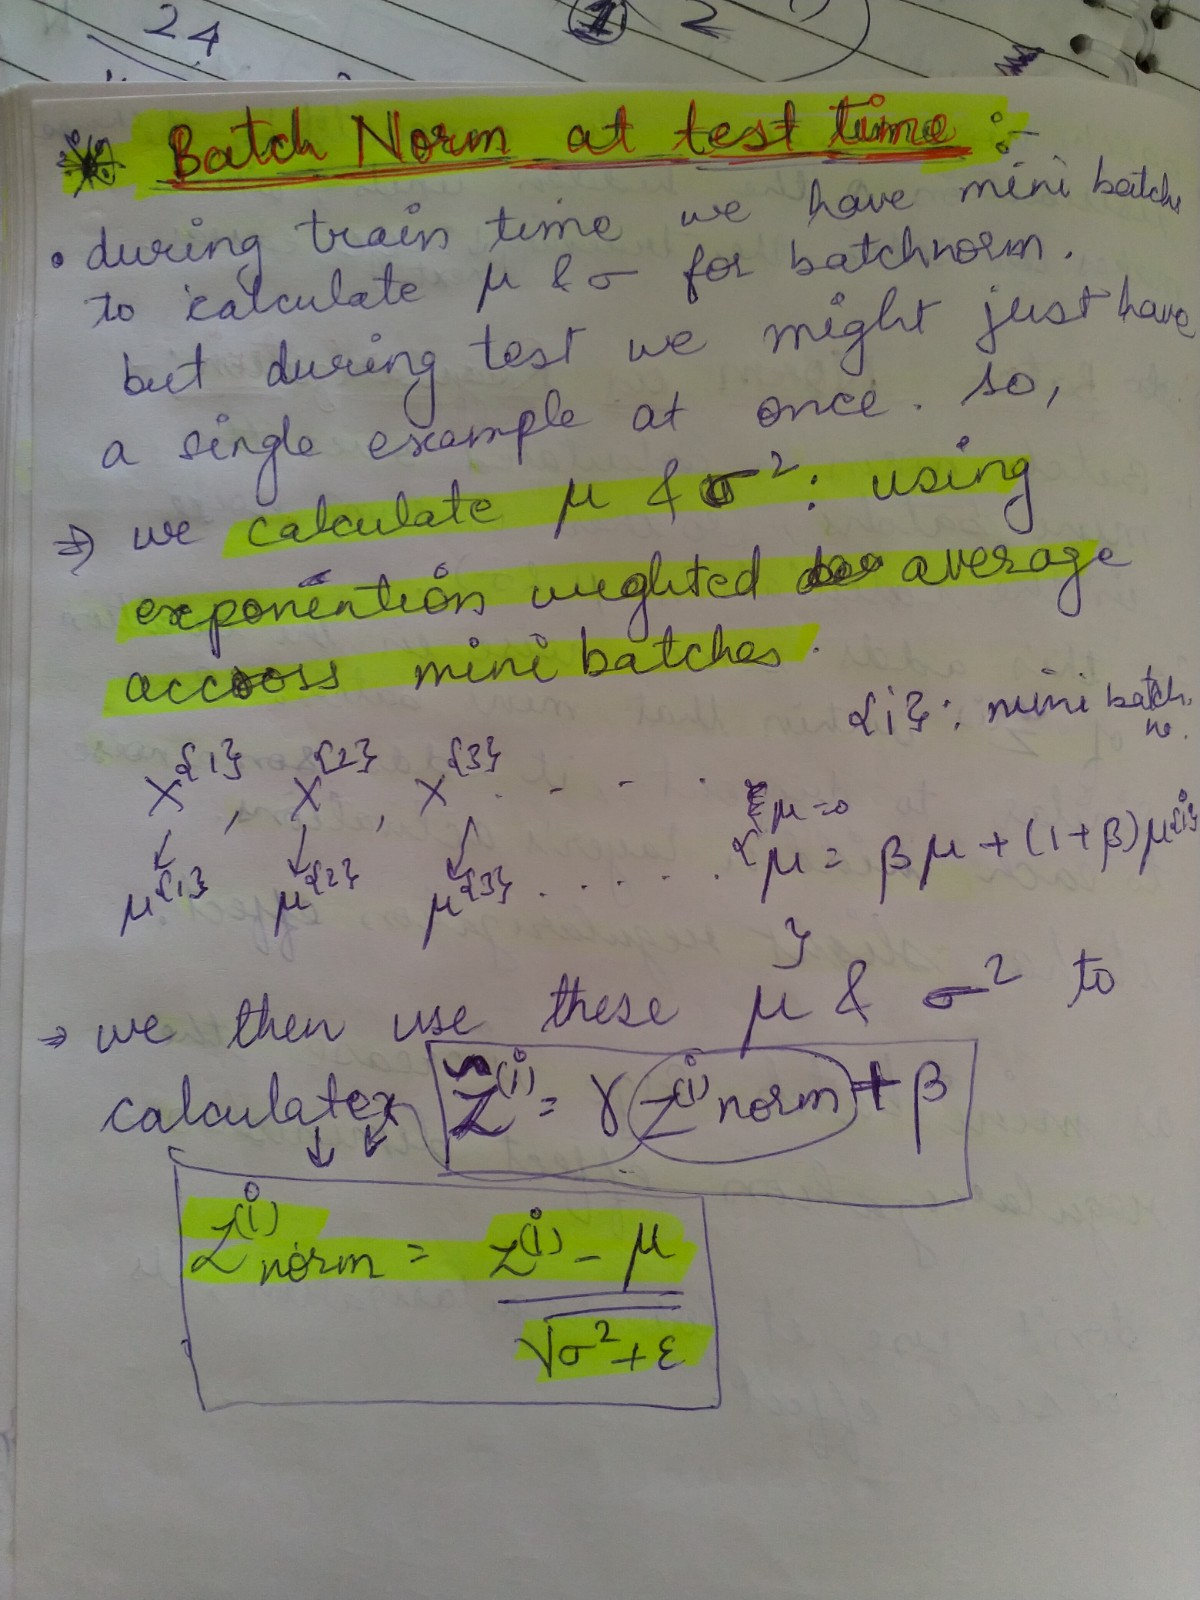 24 1 2
* Batch Norm at test time :-
• during train time we have mini batchs
to calculate μ & σ for batchnorm.
but during test we might just have
a single example at once. so,
⇒ we calculate μ & σ²: using
exponention weghted average
accross mini batches.
{i}: mini batch no.
X^{1}, X^{2}, X^{3} . - - .
μ=0
↓ ↓ ↓
μ^{1} μ^{2} μ^{3} . . . . .
{ μ = βμ + (1+β)μ^{i}
}
⇒ we then use these μ & σ² to
calculate Z̃^(i) = γ Z^(i) norm + β
↓ ↓
Z^(i) norm = (z^(i) - μ) / √σ²+ε